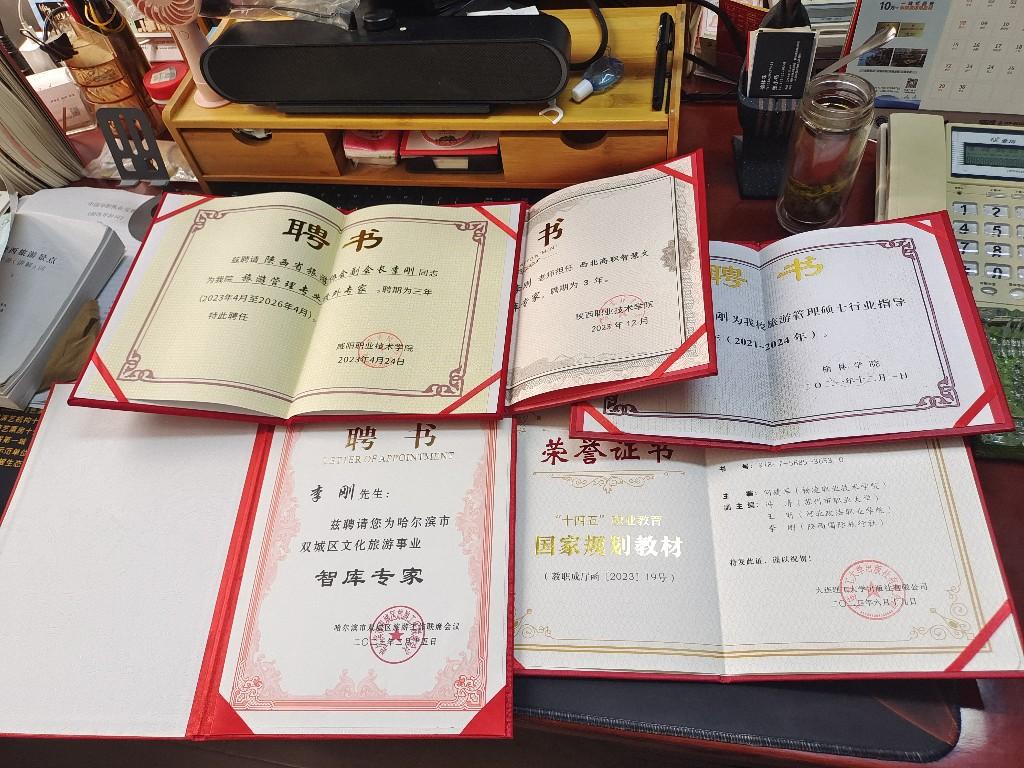 聘 书
兹聘请 陕西省旅 副会长李刚 同志
为我院 旅游管理专业 专家 ,聘期为三年
(2023年4月至2026年4月)。
特此聘任
咸阳职业技术学院
2023年4月24日
书
刚 老师担任 西北高职智慧文
专家,聘期为 3 年。
陕西职业技术学院
2023 年 12月
聘 书
刚 为我校旅游管理硕士行业指导
(2021-2024 年)。
榆 林 学 院
聘 书
LETTER OF APPOINTMENT
李 刚 先生:
兹聘请您为哈尔滨市
双城区文化旅游事业
智库专家
荣誉证书
“十四五”职业教育
国家规划教材
(教职成厅函〔2023〕19号)
书 号:
主 编:
副主编:
李 刚(陕西国际旅行社)
特发此证,谨以祝贺!
大连理工大学出版社有限公司
二〇二三年六月十九日
10月
1 2 3
4 5 6
7 8 9